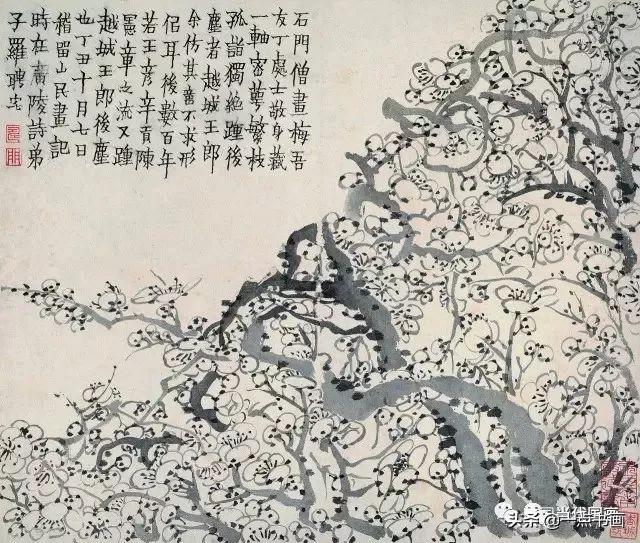 石門僧畫梅吾
友丁處士敬身藏
一軸密萼繁枝
孤詣獨絕踵後
塵者越城王郎
余仿其意不求形
侶耳後數百年
若王彥辛貢陳
憲章之流又踵
越城王郎後塵
也丁丑十月七日
稽留山民畫記
時在廣陵詩弟
子羅聘
当代国画
头条@一点书画